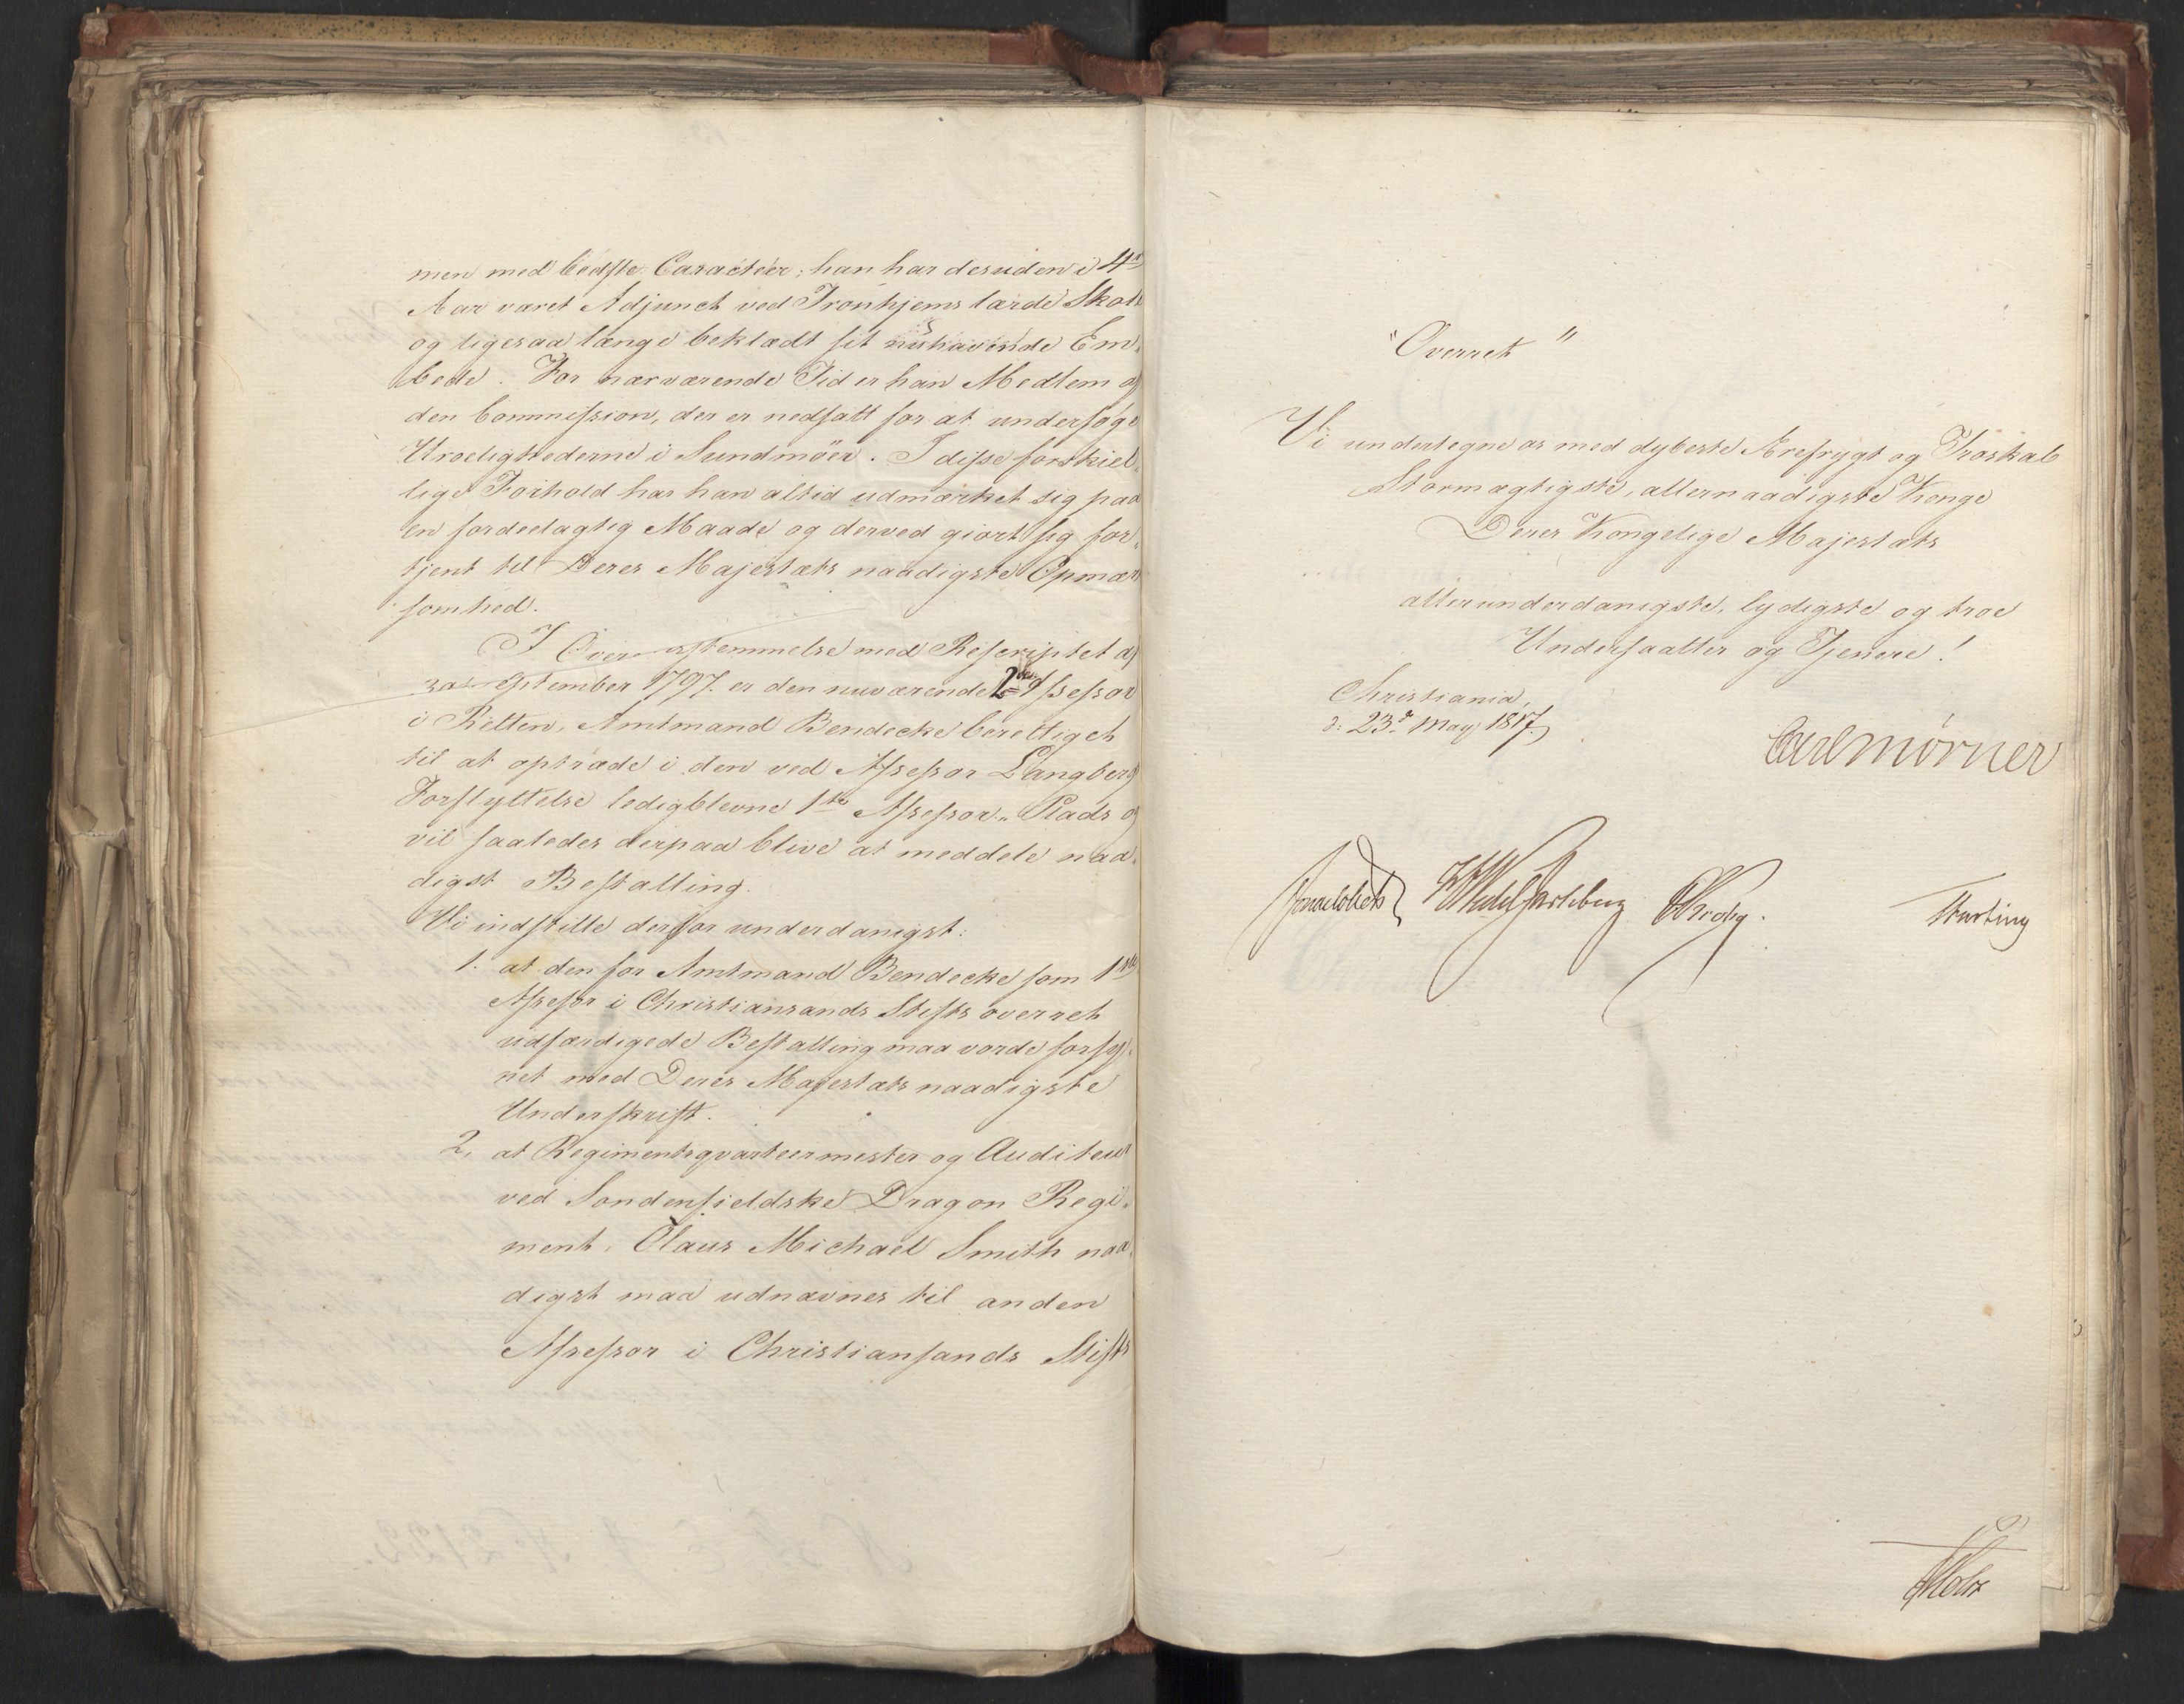 men med bedste Caracteer; han har desuden i 4re
Aar været Adjunct ved Tronhjems lærde Skole
og ligesaa længe beklædt sit nuhavende Em-
bede. For nærværende Tid er han Medlem af
den Commission, der er nedsatt for at undersøge
Uroelighederne i Sundmöer. I disse forskiel-
lige Forhold har han altid udmærket sig paa
en fordeelagtig Maade og derved giort sig for-
tjent til Deres Majestæts naadigste Opmærk
somhed.
I Overensstemmelse med Rescriptet af
September 1797. er den nuværende 2den Assessor
i Retten, Amtmand Bendecke berettiget
til at optræde i den ved Assessor Langbergs
Forflyttelse ledigblevne 1ste Assessor-Plads og
vil saaledes derpaa blive at meddele naa-
digst Bestalling.
Vi indstille derfor underdanigst:
1. at den for Amtmand Bendecke som 1ste
Assessor i Christiansands Stifts overret
udfærdigede Bestalling maa vorde forsy-
net med Deres Majestæts naadigste
Underskrift.
2. at Regimentsqvarteermester og Auditeur
ved Søndenfieldske Dragon Regi-
ment, Claus Michael Smith naa-
digst maa udnævnes til anden
Assessor i Christiansands Stifts
"Overret"
Vi undertegne os med dybeste Ærefrygt og Troskab
Stormægtigste, allernaadigste Konge
Deres Kongelige Majestæts
allerunderdanigste, lydigste og troe
Undersaatter og Tjenere!
Christiania,
d: 23de May 1817.
Carl Mörner
Jonas Collett HWedel Jarlsberg CKrohg. Motzfeldt
Holst